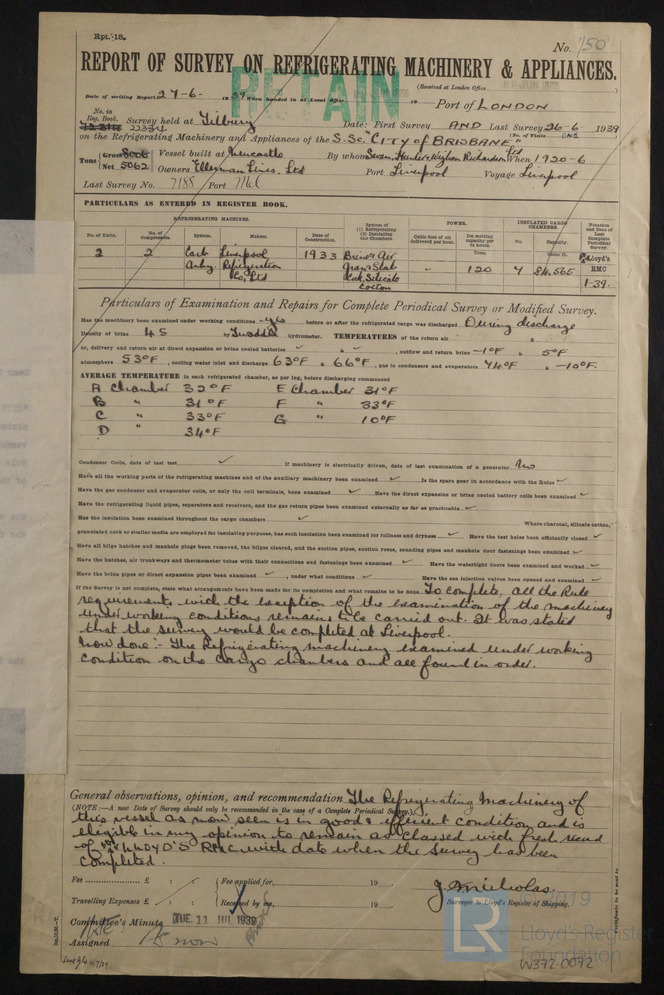 Rpt. 18.
No. 150
REPORT OF SURVEY ON REFRIGERATING MACHINERY & APPLIANCES.
RETAIN
(Received at London Office
Date of writing Report 27-6- 1939 When handed in at Local Office 19 Port of LONDON
No. in Reg. Book. 22334 Survey held at Tilbury Date: First Survey AND Last Survey 26-6- 1939
(No. of Visits ONE
on the Refrigerating Machinery and Appliances of the S.Sc "CITY of BRISBANE"
Tons { Gross 8006 Vessel built at Newcastle By whom Swan, Hunter & Wigham Richardson Ltd When 1920-6
Net 5062 Owners Ellerman Lines, Ltd Port Liverpool Voyage Liverpool
Last Survey No. 7188 Port Mel
PARTICULARS AS ENTERED IN REGISTER BOOK.
REFRIGERATING MACHINES. POWER. INSULATED CARGO CHAMBERS.
No. of Units. No. of Compressors. System. Makers. Date of Construction. System of (1) Refrigerating (2) Insulating the Chambers. Cubic feet of air delivered per hour. Ice melting capacity per 24 hours. No. Capacity. Notation and Date of Last Complete Periodical Survey.
Tons. Cubic ft.
2 2 Carb Anhy. Liverpool Refrigeration Co, Ltd 1933 Brine & Air Gran. Slab Cork, Silicate Cotton " 120 7 84,565 Lloyd's RMC 1-39.
Particulars of Examination and Repairs for Complete Periodical Survey or Modified Survey.
Has the machinery been examined under working conditions yes before or after the refrigerated cargo was discharged During discharge
Density of brine 45 by Twaddle hydrometer. TEMPERATURES of the return air &
or, delivery and return air at direct expansion or brine cooled batteries ✓ & ✓, outflow and return brine -1°F & 5°F
atmosphere 53°F, cooling water inlet and discharge 63°F & 66°F, gas in condensers and evaporators 74°F & -10°F.
AVERAGE TEMPERATURE in each refrigerated chamber, as per log, before discharging commenced
A Chamber 32°F E Chamber 31°F
B " 31°F F " 33°F
C " 33°F G " 10°F
D " 34°F
Condenser Coils, date of last test ✓ If machinery is electrically driven, date of last examination of a generator No
Have all the working parts of the refrigerating machines and of the auxiliary machinery been examined ✓ Is the spare gear in accordance with the Rules ✓
Have the gas condenser and evaporator coils, or only the coil terminals, been examined ✓ Have the direct expansion or brine cooled battery coils been examined ✓
Have the refrigerating liquid pipes, separators and receivers, and the gas return pipes been examined externally as far as practicable ✓
Has the insulation been examined throughout the cargo chambers ✓ Where charcoal, silicate cotton,
granulated cork or similar media are employed for insulating purposes, has such insulation been examined for fullness and dryness ✓ Have the test holes been efficiently closed ✓
Have all bilge hatches and manhole plugs been removed, the bilges cleared, and the suction pipes, suction roses, sounding pipes and manhole door fastenings been examined ✓
Have the hatches, air trunkways and thermometer tubes with their connections and fastenings been examined ✓ Have the watertight doors been examined and worked ✓
Have the brine pipes or direct expansion pipes been examined ✓, under what conditions ✓ Have the sea injection valves been opened and examined ✓
If the Survey is not complete, state what arrangements have been made for its completion and what remains to be done. To complete, all the Rule
requirements with the exception of the examination of the machinery
under working conditions remains to be carried out. It was stated
that the survey would be completed at Liverpool.
Now done:- The Refrigerating machinery examined under working
condition on the cargo chambers and all found in order.
General observations, opinion, and recommendation The Refrigerating Machinery of
(NOTE:—A new Date of Survey should only be recommended in the case of a Complete Periodical Survey.)
this vessel as now seen is in good & efficient condition and is
eligible in my opinion to remain as classed with fresh record
of LLOYD'S RMC with date when the survey has been
completed.
Fee £ : : Fee applied for, 19
Travelling Expenses £ : : Received by me, 19
J. Nicholas.
Surveyor to Lloyd's Register of Shipping.
Committee's Minute TUE. 11 JUL 1939
Assigned As now
2019
LR
Lloyd's Register
Foundation
W372-0072